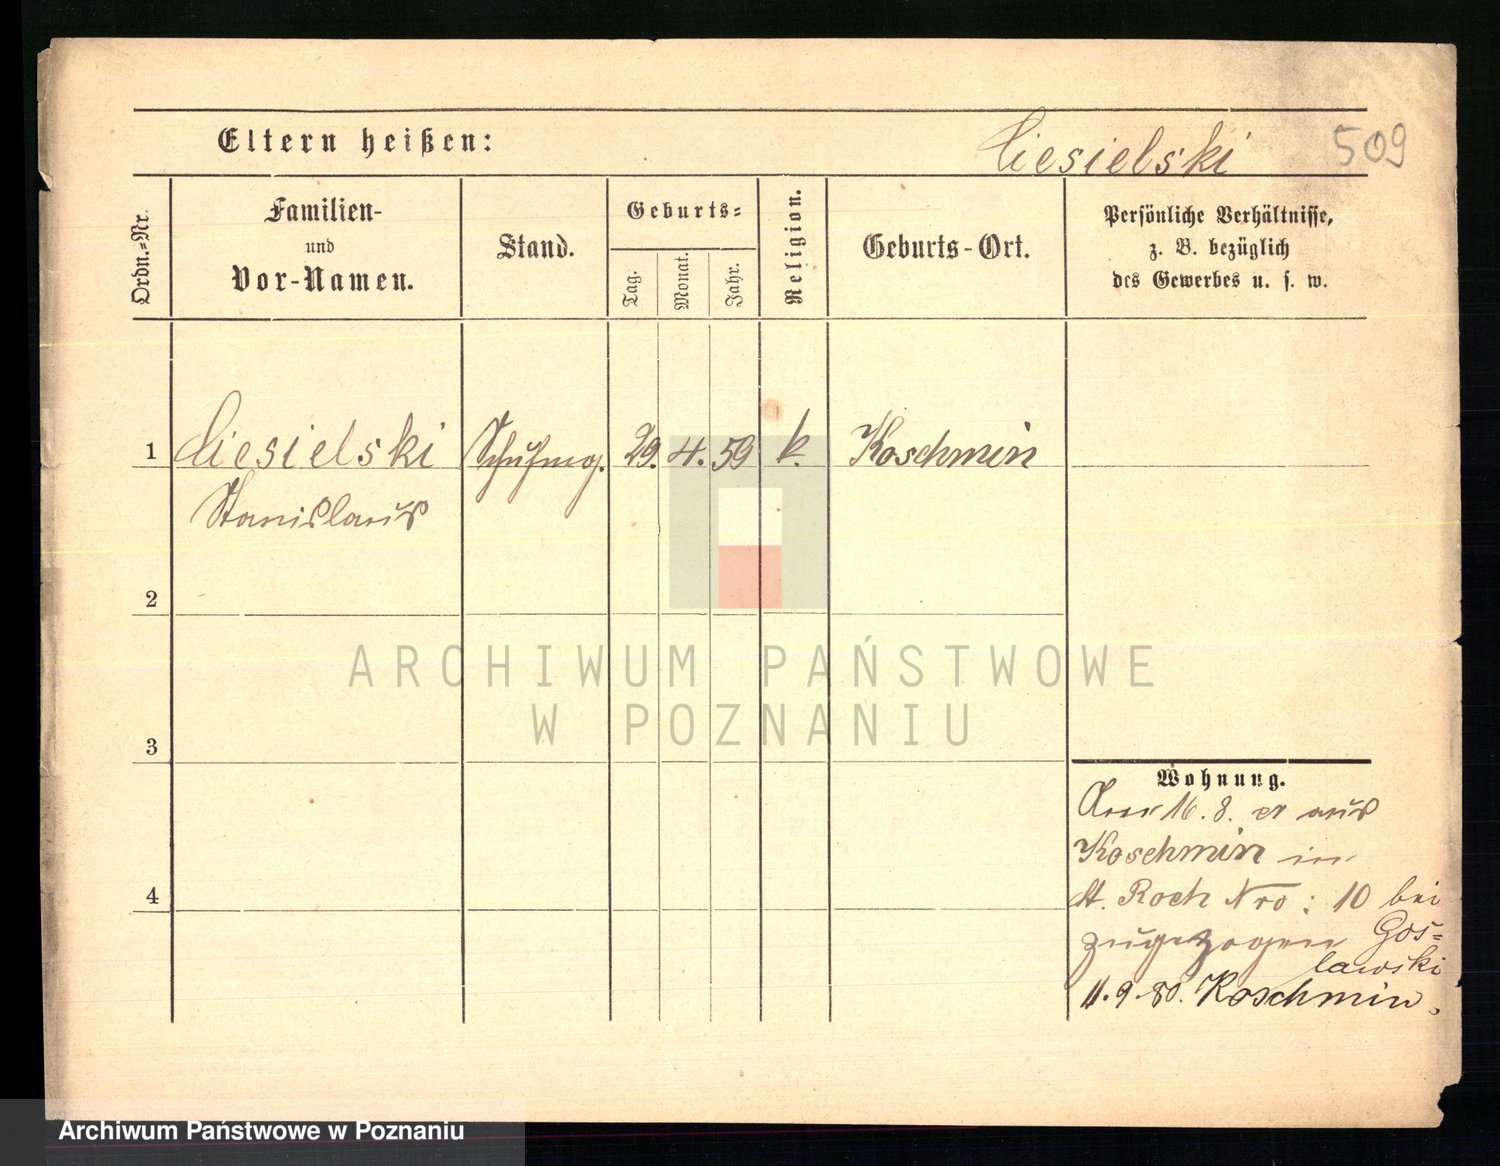 Eltern heißen:
Ciesielski
509
Ordn.-Nr.
Familien-
und
Vor-Namen.
Stand.
Geburts-
Tag.
Monat.
Jahr.
Religion.
Geburts-Ort.
Persönliche Verhältnisse,
z. B. bezüglich
des Gewerbes u. s. w.
1 Ciesielski Schuhmg. 29. 4. 59 k. Koschmin
Stanislaus
2
3
4
Wohnung.
Am 16. 8. cr aus
Koschmin in
St. Roch Nro: 10 bei
zugezogen Gos=
lawski
11.9.80. Koschmin.
ARCHIWUM PAŃSTWOWE
W POZNANIU
Archiwum Państwowe w Poznaniu